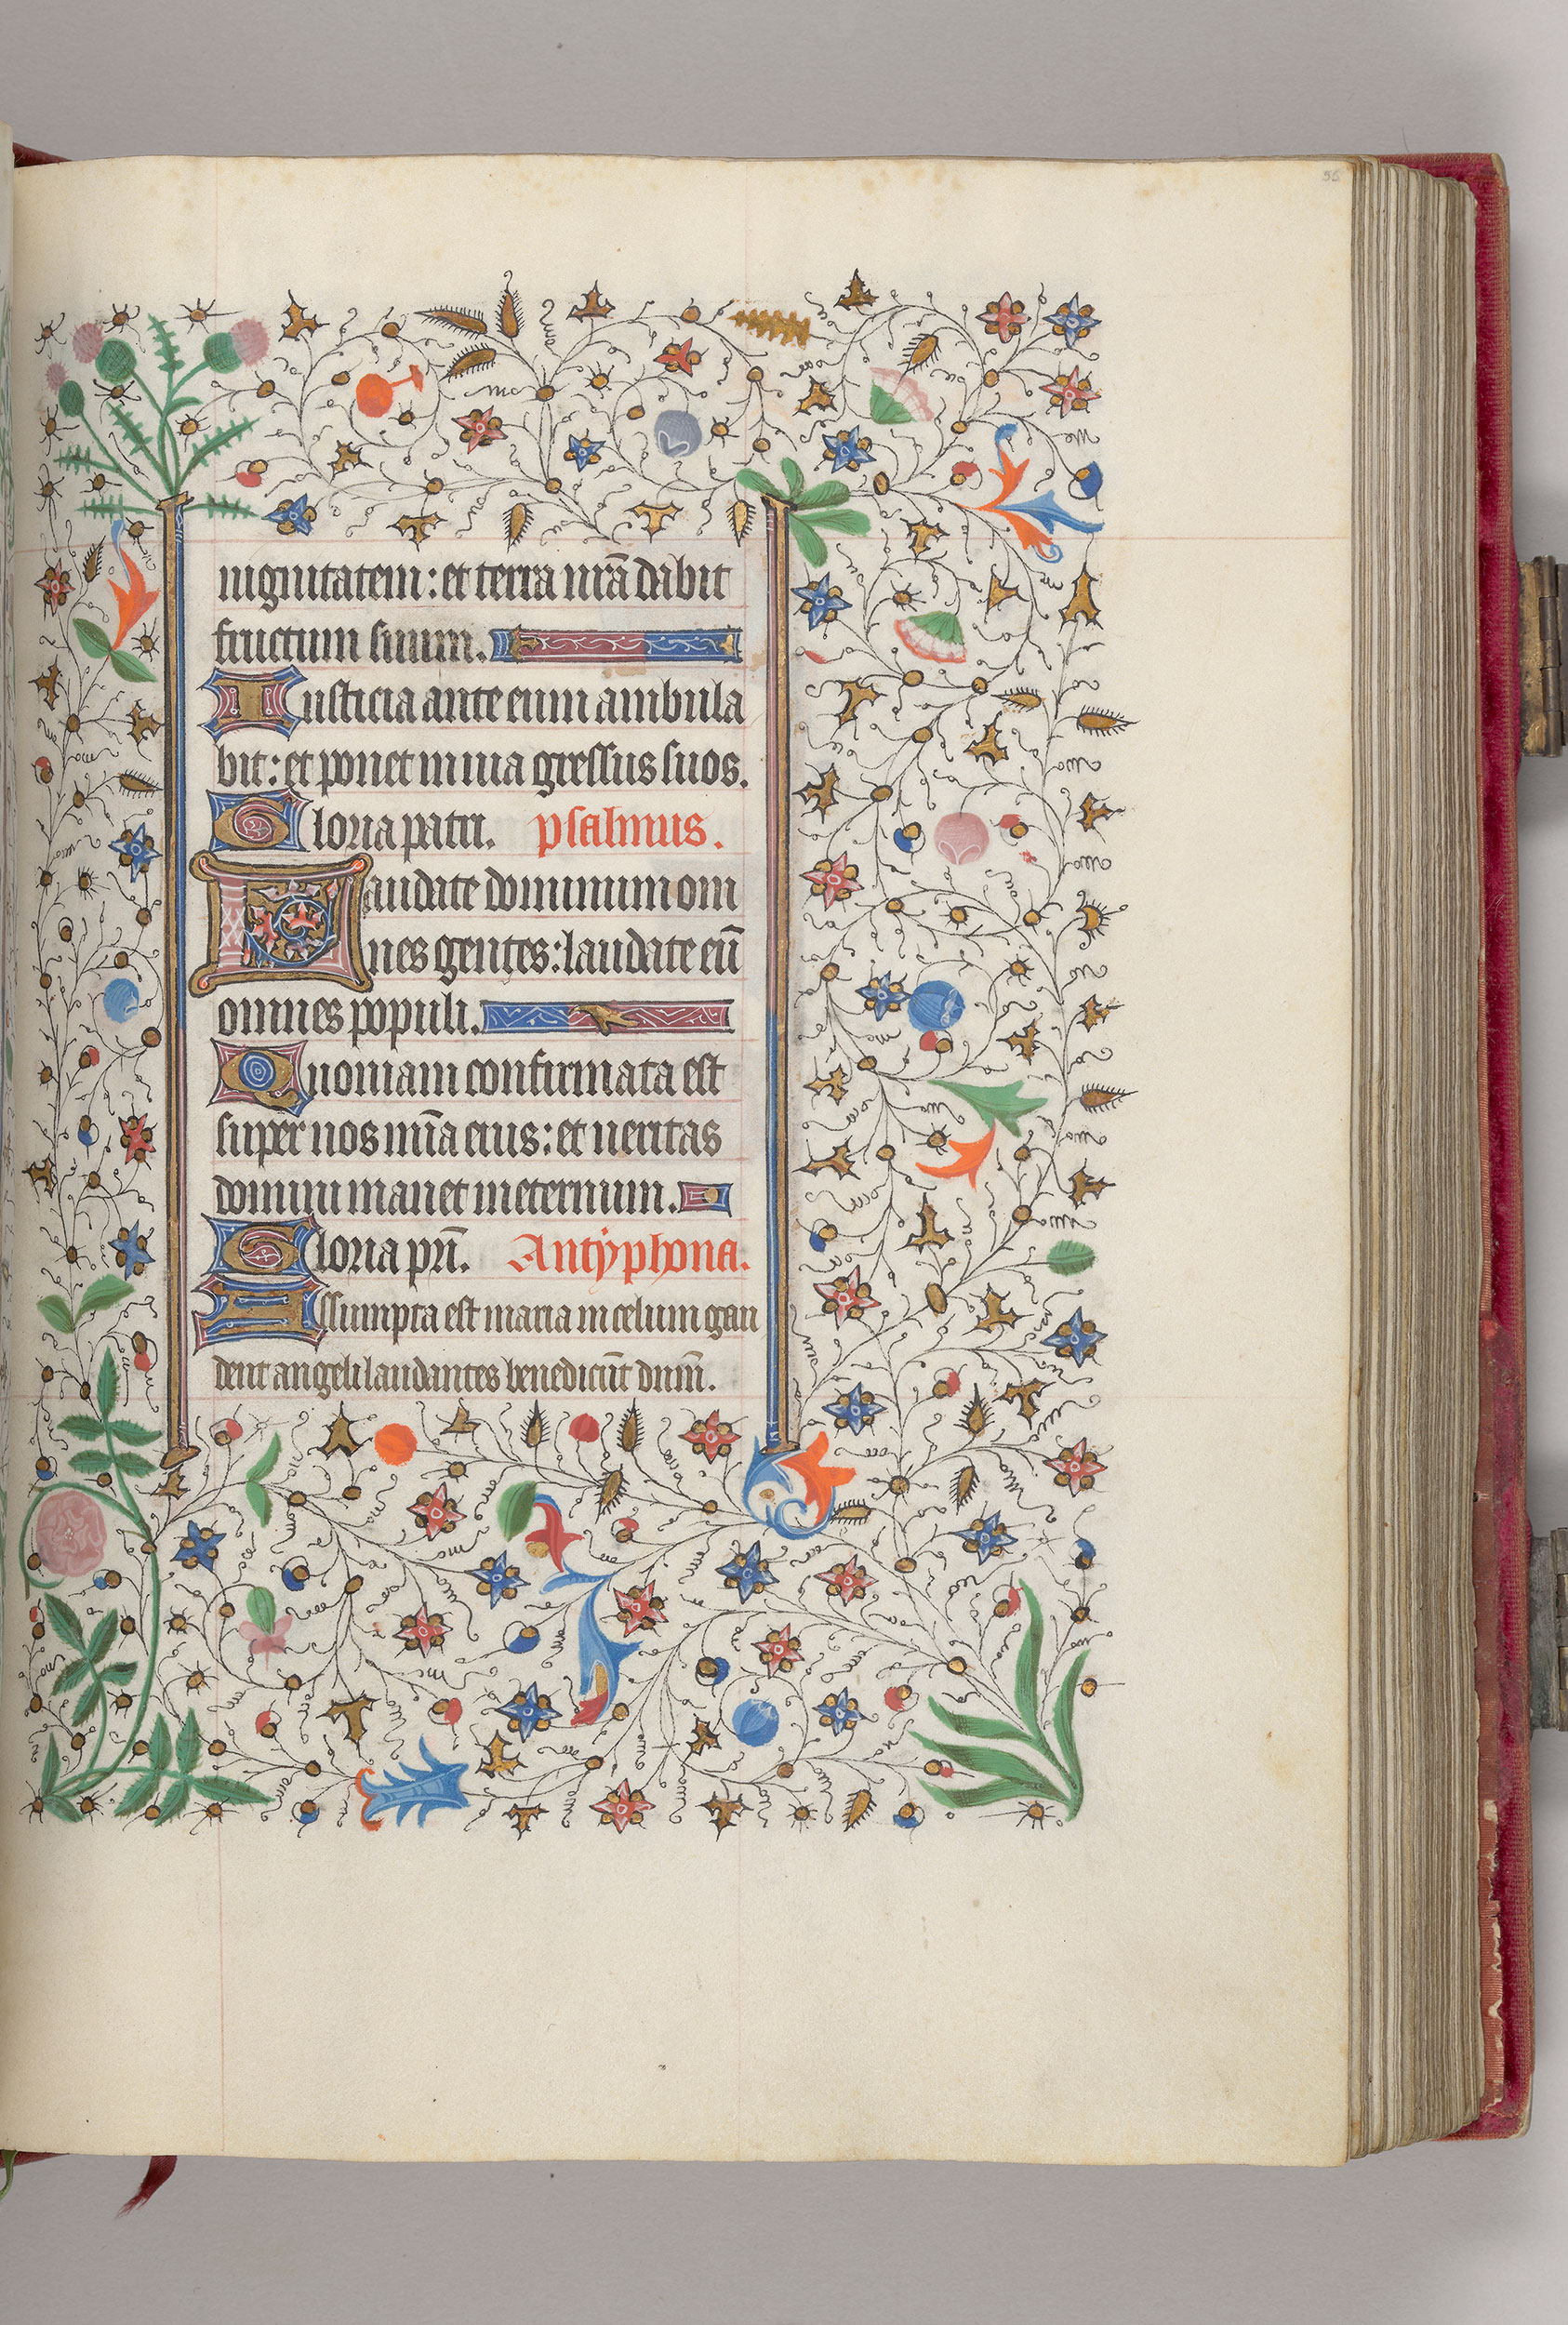 56
nignitatem: et terra nr̄a dabit
fructum suum.
Iusticia ante eum ambula
bit: et ponet in uia gressus suos.
Gloria patri. psalmus.
Laudate dominum om
nes gentes: laudate eū
omnes populi.
Quoniam confirmata est
super nos mīa eius: et ueritas
domini manet ineternum.
Gloria pr̄i. Antyphona.
Assumpta est maria in celum gau
dent angeli laudantes benedicūt dnm̄.